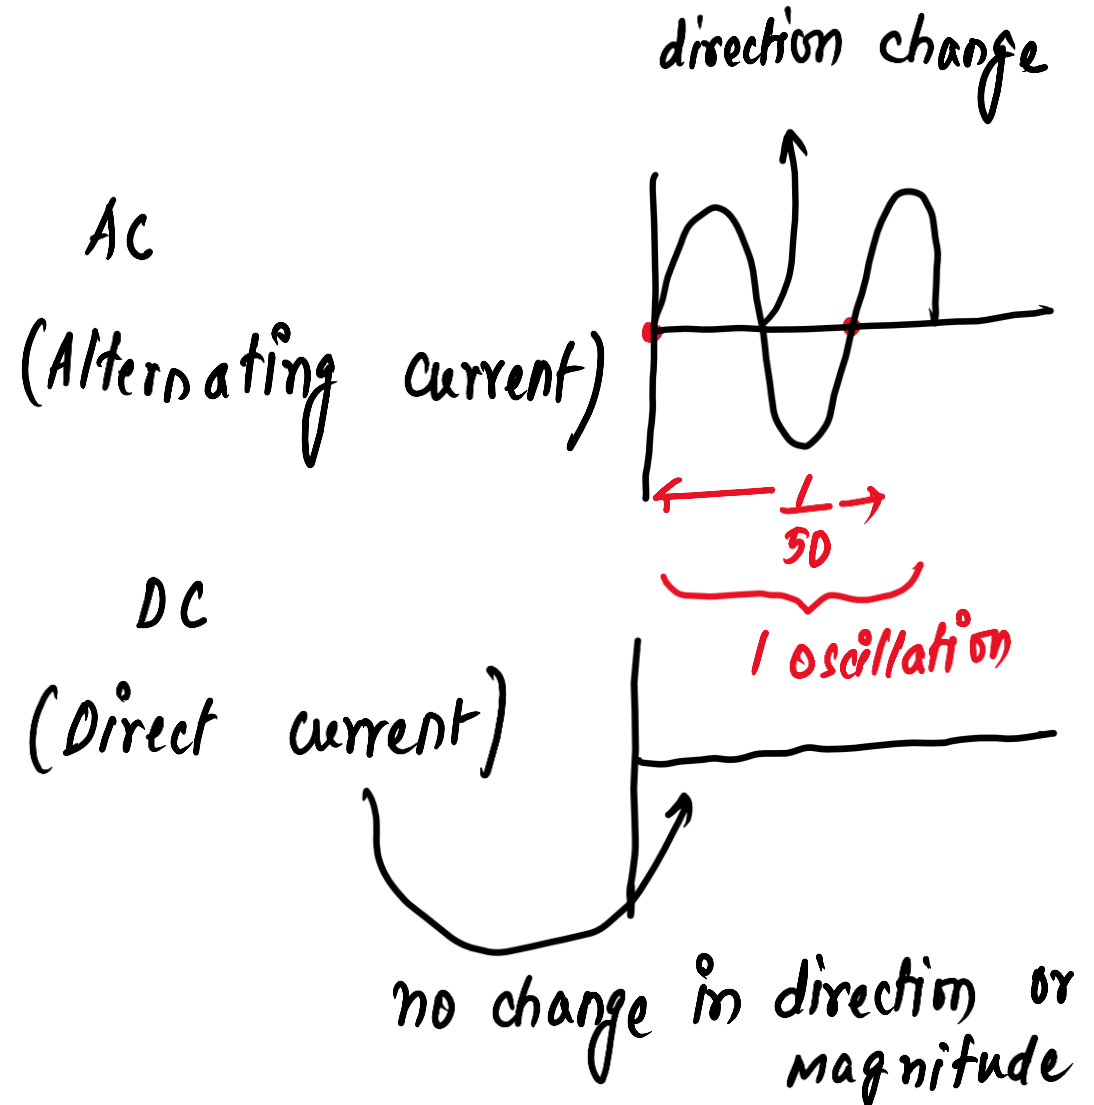 direction change
AC
(Alternating current)
1
50
1 oscillation
DC
(Direct current)
no change in direction or
magnitude